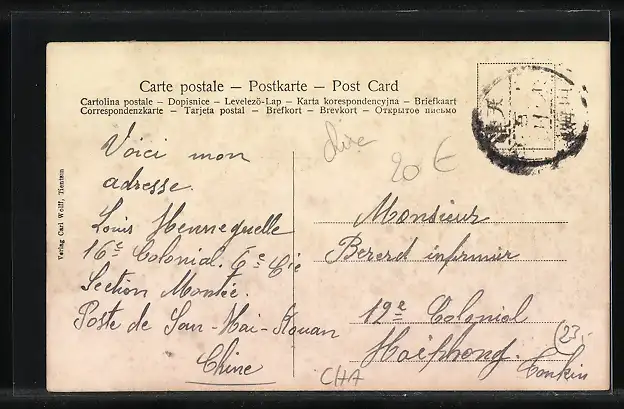 Carte postale – Postkarte – Post Card
Cartolina postale – Dopisnice – Levelező-Lap – Karta korespondencyjna – Briefkaart
Correspondenzkarte – Tarjeta postal – Brefkort – Brevkort – Открытое письмо
Verlag Carl Wolff, Tientsin
Voici mon
adresse.
Louis Hennequelle
16e Colonial. 6e Cie
Section Montée.
Poste de San-Hai-Kouan
Chine
Chine
20 €
Monsieur
Bererd infirmier
12e Colonial
Haïphong.
Tonkin
23
CHA